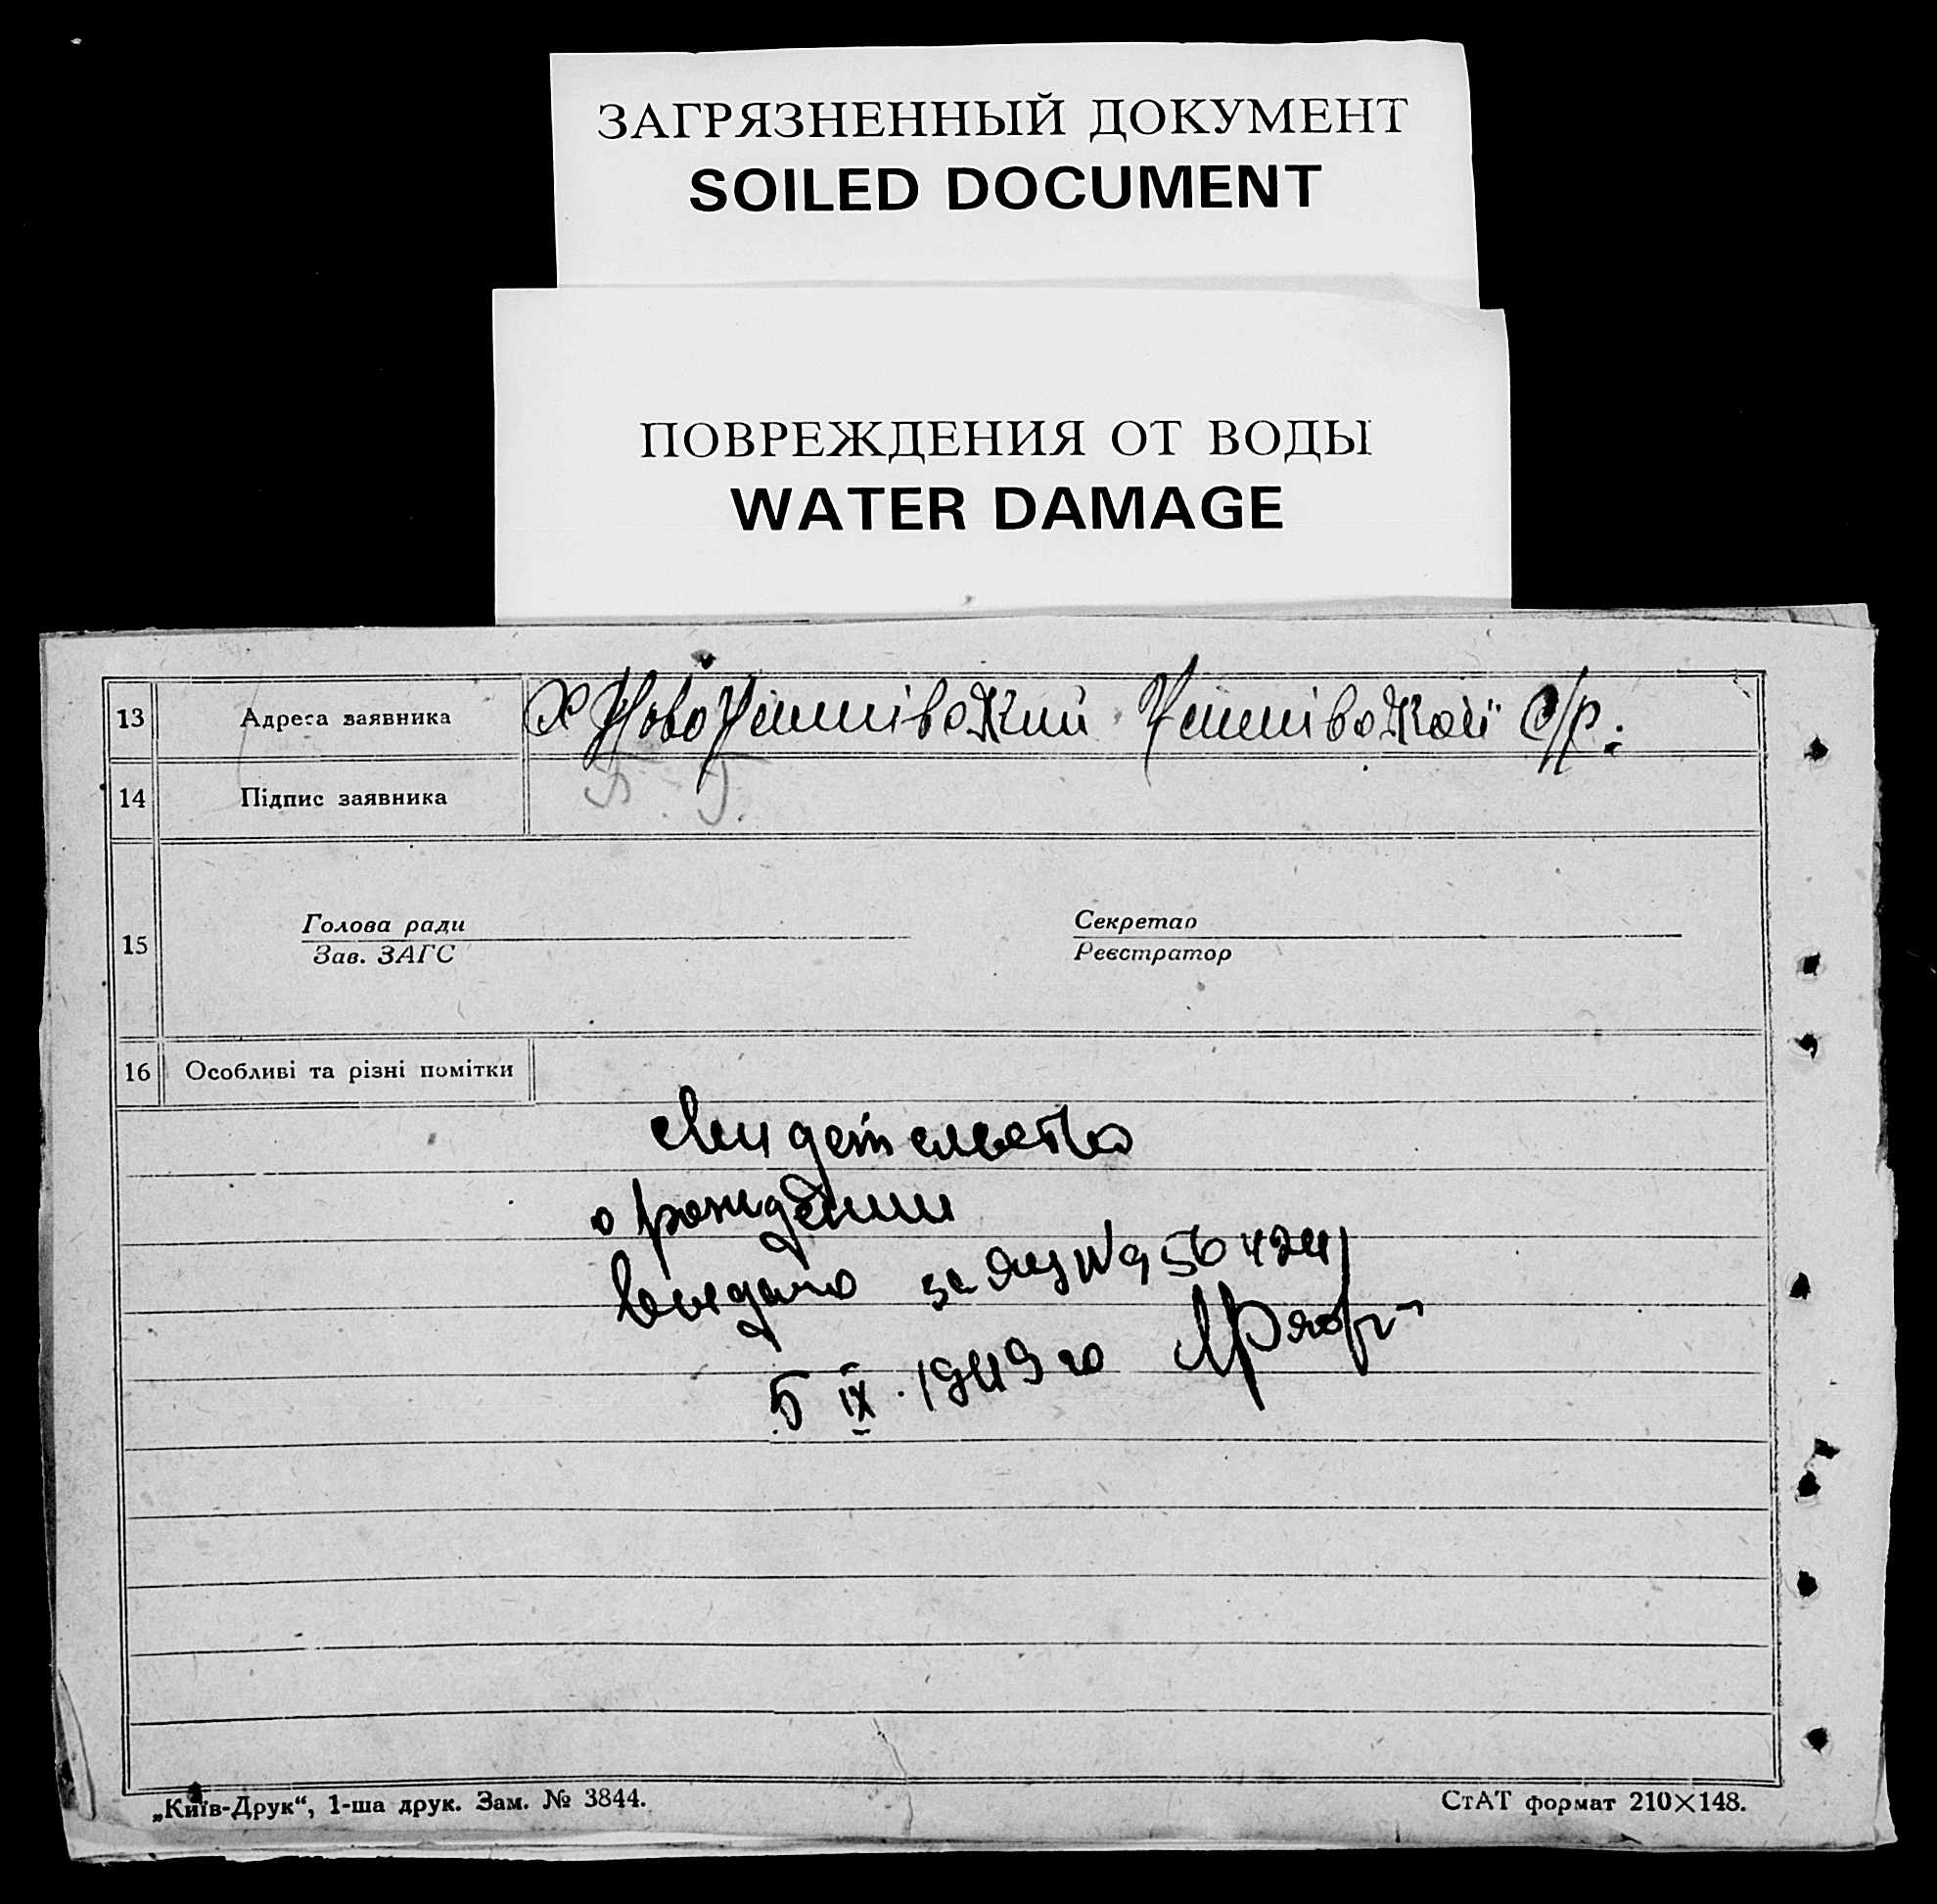 ЗАГРЯЗНЕННЫЙ ДОКУМЕНТ
SOILED DOCUMENT
ПОВРЕЖДЕНИЯ ОТ ВОДЫ
WATER DAMAGE
13 Адреса заявника Х с/р.
14 Підпис заявника
15 Голова ради Секретар
Зав. ЗАГС Реєстратор
16 Особливі та різні помітки
свидетельство
о рождении
выдано за №
5 IX. 1949 го
„Київ-Друк“, 1-ша друк. Зам. № 3844.
СтАТ формат 210×148.